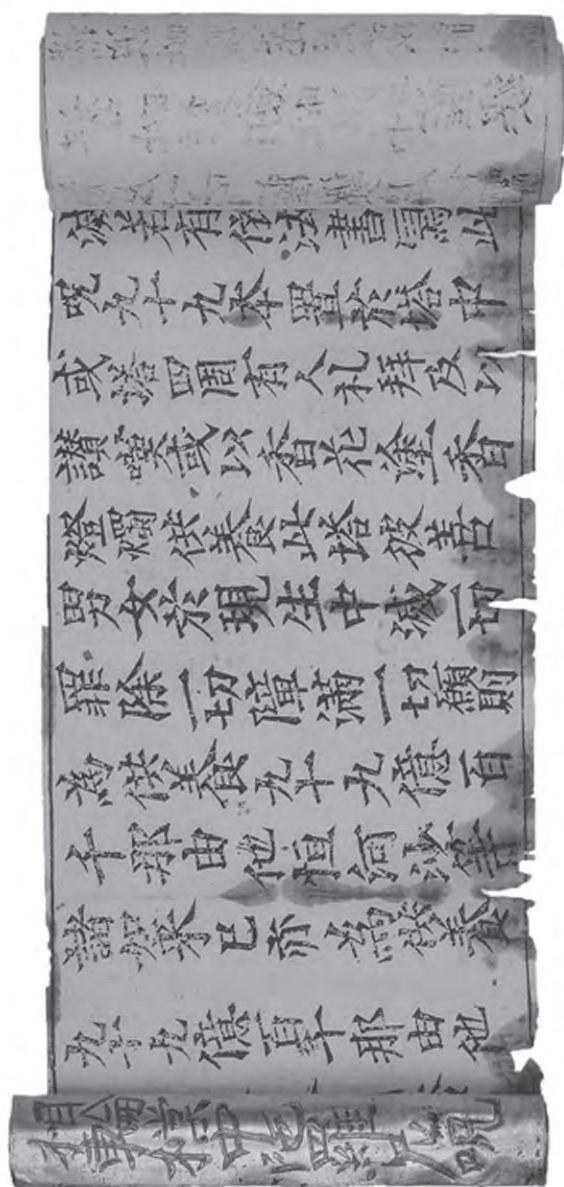 滅若有依法書寫此
呪九十九本置於塔中
或塔四周有人礼拜及以
讃嘆或以香花塗香
燈燭供養此塔彼善
男女於現生中滅一切
罪除一切障滿一切願則
為供養九十九億百
千那由他恒河沙等
諸如來已亦為供養
九十九億百千那由他
相輪橖中陀羅尼呪